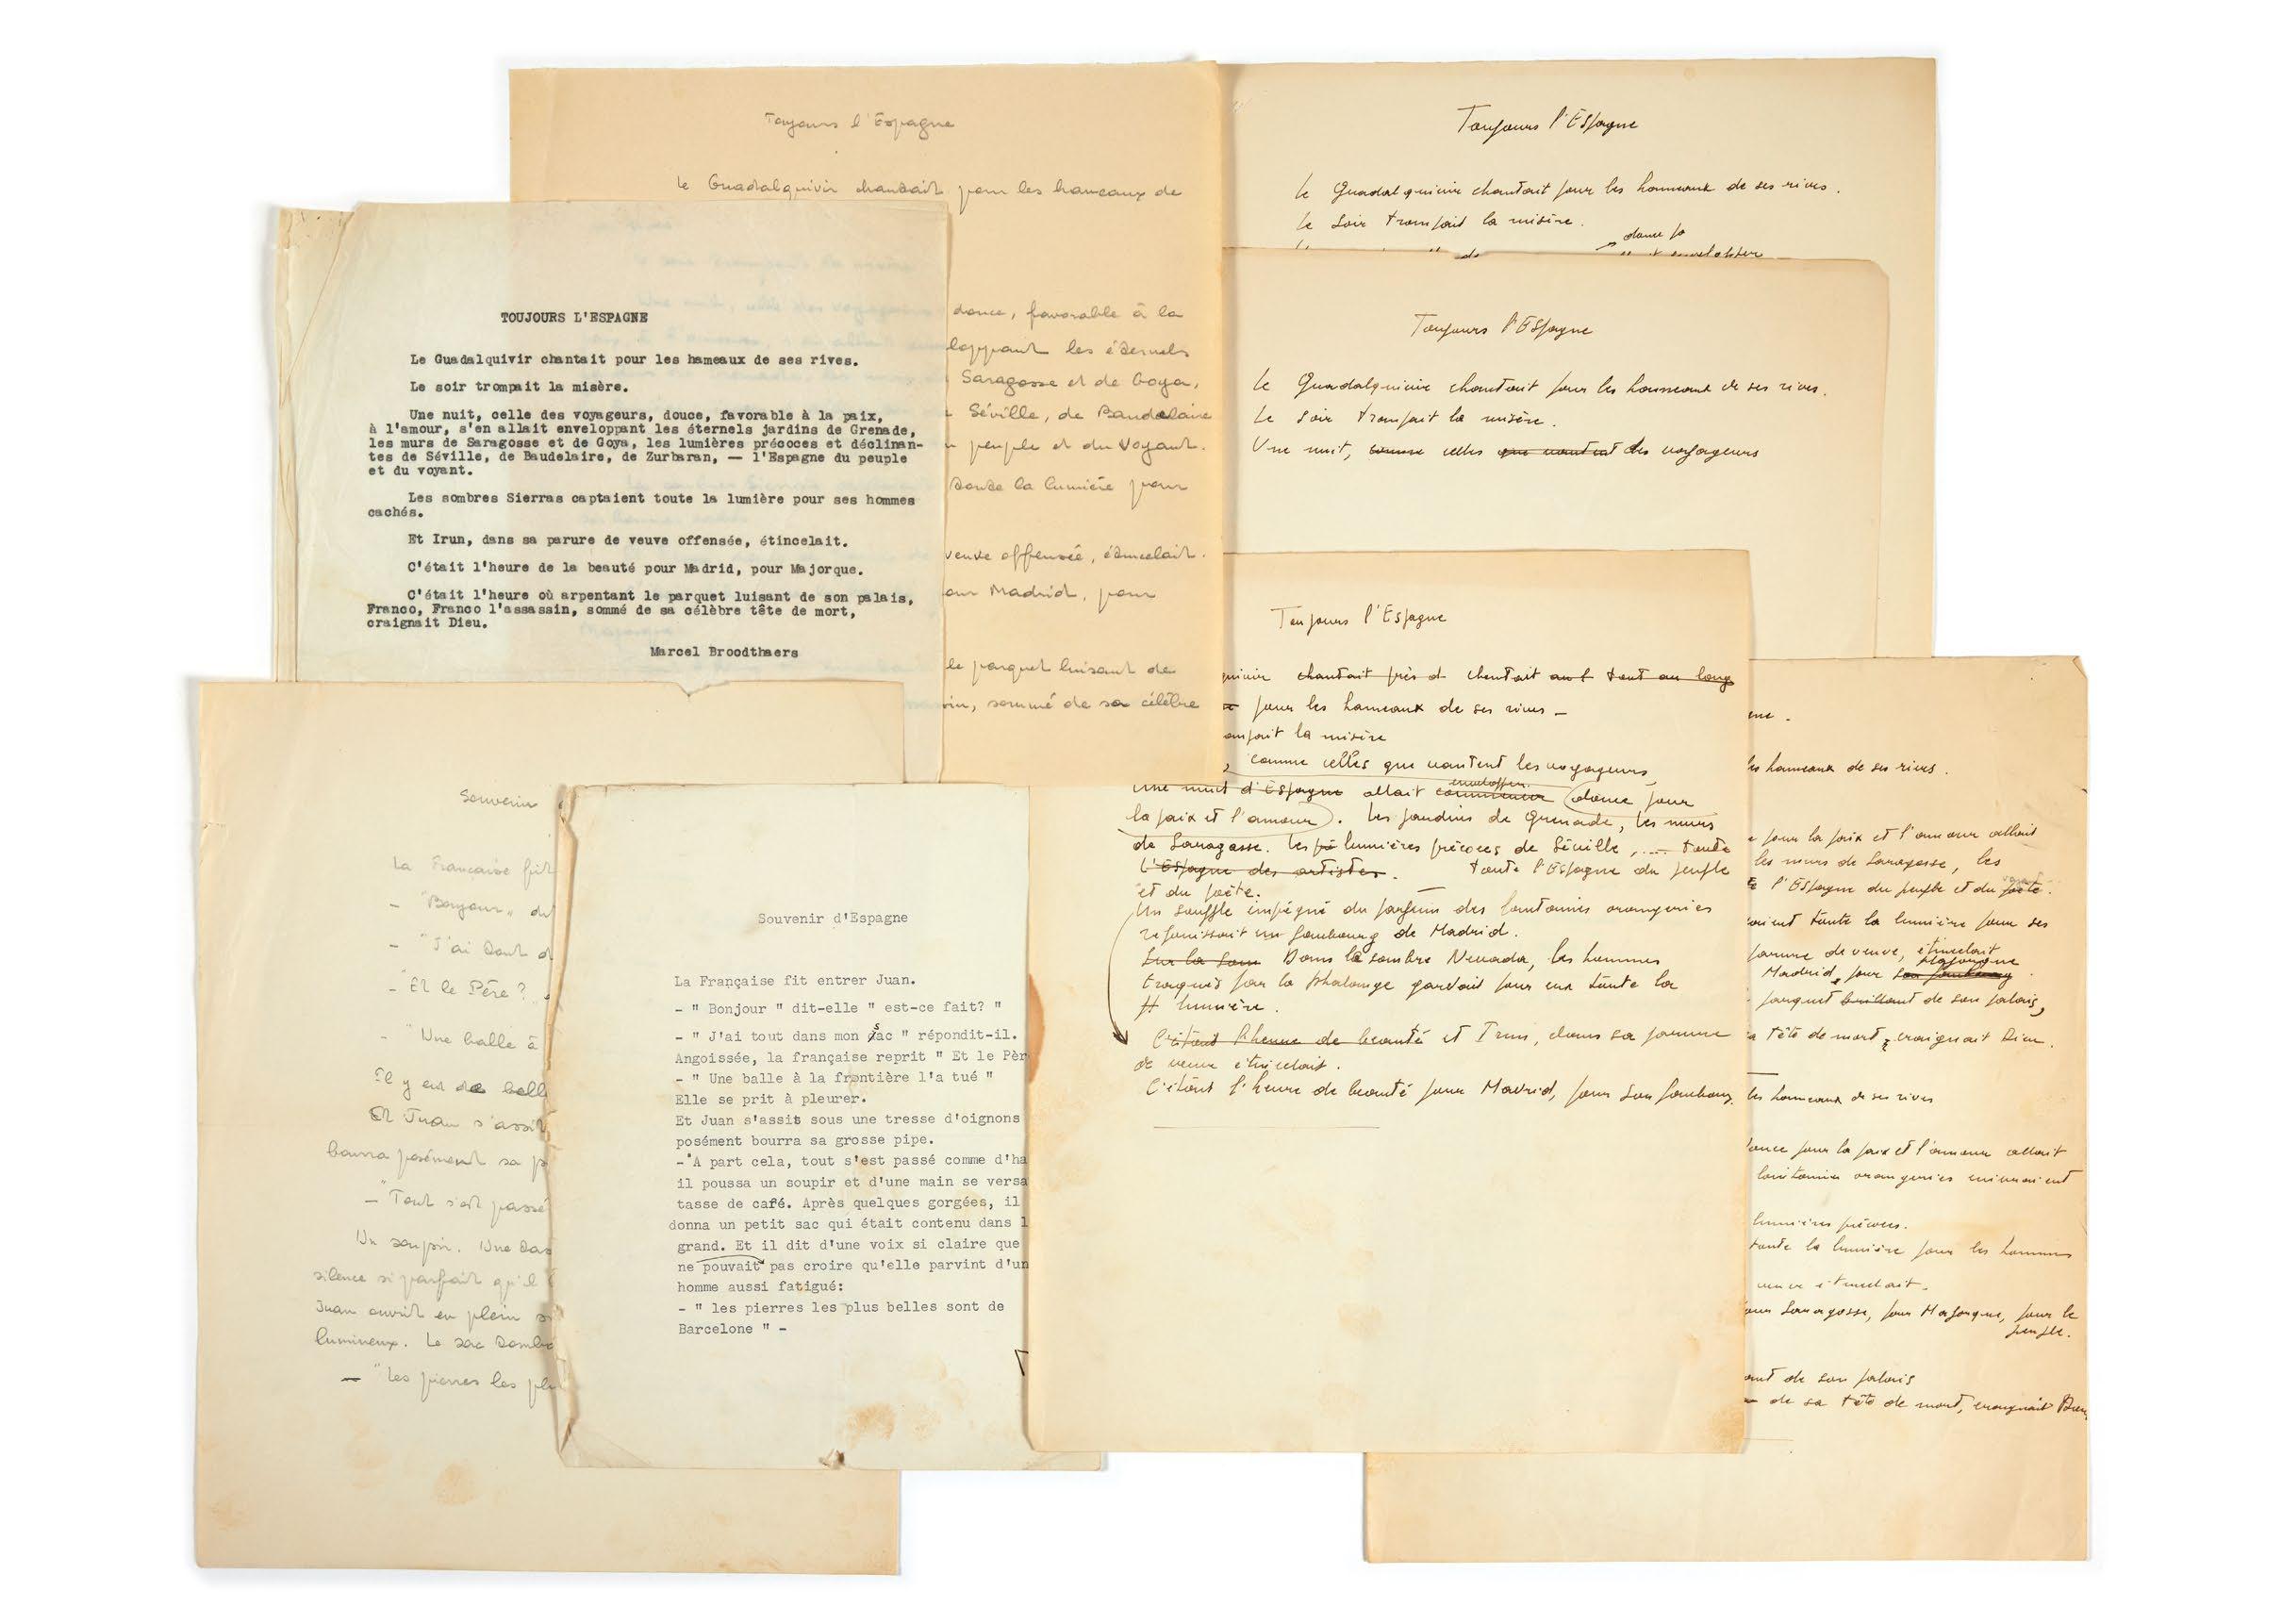 Toujours l'Espagne
le Guadalquivir chantait pour les hameaux de
douce, favorable à la
loppant les éternels
Saragosse et de Goya,
Séville, de Baudelaire
peuple et du Voyant.
toute la lumière pour
veuve offensée, étincelait.
our Madrid, pour
le parquet luisant de
sin, sommé de sa célèbre
Toujours l'Espagne
le Guadalquivir chantait pour les hameaux de ses rives.
le soir trompait la misère.
douce
TOUJOURS L'ESPAGNE
Le Guadalquivir chantait pour les hameaux de ses rives.
Le soir trompait la misère.
Une nuit, celle des voyageurs, douce, favorable à la paix,
à l'amour, s'en allait enveloppant les éternels jardins de Grenade,
les murs de Saragosse et de Goya, les lumières précoces et déclinan-
tes de Séville, de Baudelaire, de Zurbaran, — l'Espagne du peuple
et du voyant.
Les sombres Sierras captaient toute la lumière pour ses hommes
cachés.
Et Irun, dans sa parure de veuve offensée, étincelait.
C'était l'heure de la beauté pour Madrid, pour Majorque.
C'était l'heure où arpentant le parquet luisant de son palais,
Franco, Franco l'assassin, sommé de sa célèbre tête de mort,
craignait Dieu.
Marcel Broodthaers
Toujours l'Espagne
Le Guadalquivir chantait pour les hameaux de ses rives.
Le soir trompait la misère.
Une nuit, comme celles que vantent des voyageurs
Toujours l'Espagne
quivir chantait près d chantait tout au long
pour les hameaux de ses rives —
ompait la misère
, comme celles que vantent les voyageurs,
Une nuit d'Espagne allait commencer envelopper (douce pour
la paix et l'amour). Les jardins de Grenade, les murs
de Saragosse. Les lumières précoces de Séville, ... toute
L'Espagne des artistes. toute l'Espagne du peuple
et du poète.
Un souffle imprégné du parfum des lointaines orangeries
réjouissait un faubourg de Madrid.
Dans la sombre Nevada, les hommes
traqués par la phalange gardait pour eux toute la
lumière.
C'était l'heure de beauté et Irun, dans sa parure
de veuve étincelait.
C'était l'heure de beauté pour Madrid, pour son faubourg.
les hameaux de ses rives.
pour la paix et l'amour allait
les murs de Saragosse, les
l'Espagne du peuple et du poète.
aient toute la lumière pour ses
parure de veuve, étincelait
Majorque
Madrid, pour son faubourg
parquet brillant de son palais,
tête de mort, craignait Dieu.
les hameaux de ses rives
douce pour la paix et l'amour allait
lointaines orangeries enivraient
lumières précoces.
toute la lumière pour les hommes
veuve étincelait.
pour Saragosse, pour Majorque, pour le
peuple.
ant de son palais
de sa tête de mort, craignait Dieu
Souvenir
La Française fit
— "Bonjour"
— "J'ai tout
— "Et le Père?"
— "Une balle à
Il y eut de
Et Juan s'assit
bourra posément sa
— "Tout s'est passé
Un soupir. Une
silence si parfait qu'il
Juan ouvrit en plein
lumineux. Le sac
— "Les pierres les
Souvenir d'Espagne
La Française fit entrer Juan.
- " Bonjour " dit-elle " est-ce fait? "
- " J'ai tout dans mon sac " répondit-il.
Angoissée, la française reprit " Et le Pèr
- " Une balle à la frontière l'a tué "
Elle se prit à pleurer.
Et Juan s'assit sous une tresse d'oignons
posément bourra sa grosse pipe.
-"A part cela, tout s'est passé comme d'ha
il poussa un soupir et d'une main se versa
tasse de café. Après quelques gorgées, il
donna un petit sac qui était contenu dans l
grand. Et il dit d'une voix si claire que
ne pouvait pas croire qu'elle parvint d'un
homme aussi fatigué:
- " les pierres les plus belles sont de
Barcelone " -